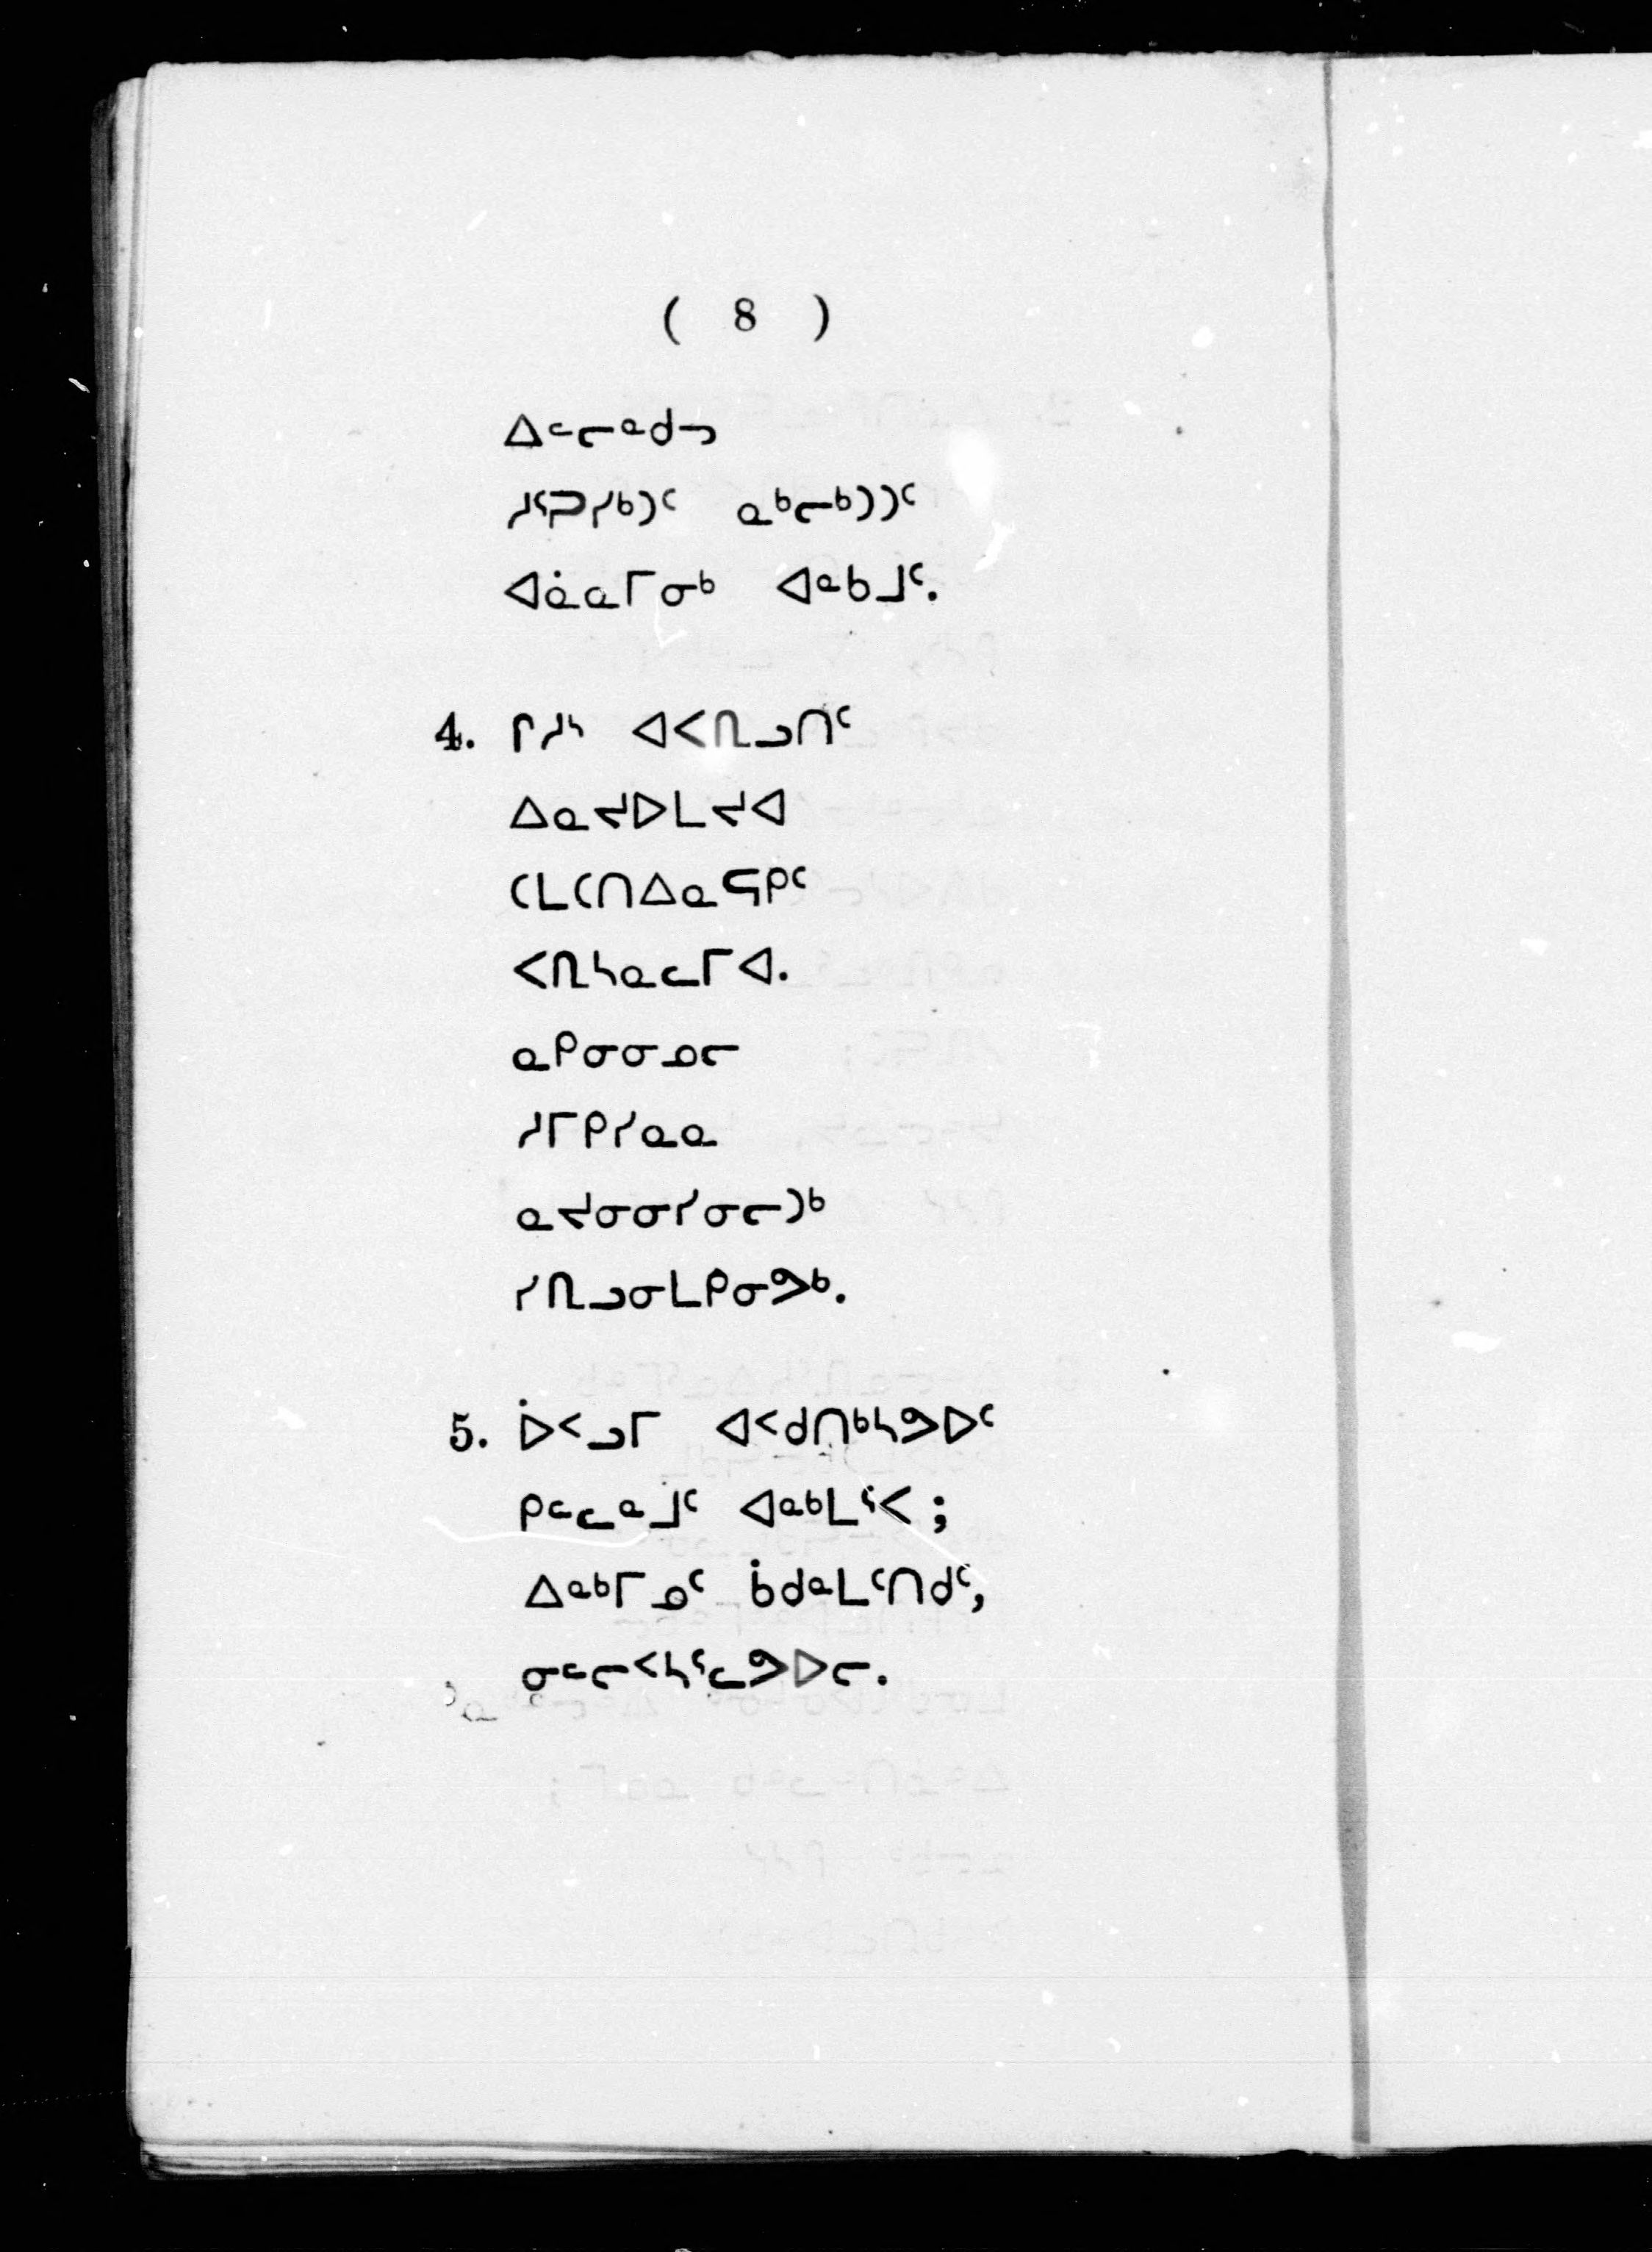 ( 8 )
ᐃᓪᓕᓐᑯᓕ
ᓱᕐᕈᓯᒃᑐᑦ ᓇᒃᓕᒃᑐᑐᑦ
ᐊᓈᓇᒥᓂᒃ ᐊᓐᑲᒧᑦ.
4. ᒋᓱᔅ ᐊᐸᕆᓗᑎᑦ
ᐃᓇᔪᐅᒪᔪᐊ
ᑕᒪᑕᑎᐃᓇᕋᑭᑦ
ᐸᕆᓴᓇᓚᒥᐊ.
ᓇᑭᓂᓂᓄᓕ
ᓱᒥᑭᓯᓇᓇ
ᓇᔪᓂᓂᓯᓂᓕᑐᒃ
ᓯᕆᓗᓂᒪᑭᓂᕗᒃ.
5. ᐆᑉᓗᒥ ᐊᑉᑯᑎᒃᓴᕗᐅᑦ
ᑭᓪᓚᓐᒧᑦ ᐊᓐᒃᒪᕐᐸ ;
ᐃᓐᒃᒥᓄᑦ ᑳᑯᓐᒪᑦᑎᑯᑦ,
ᓂᓪᓕᑉᓴᕐᓚᕗᐅᓕ.